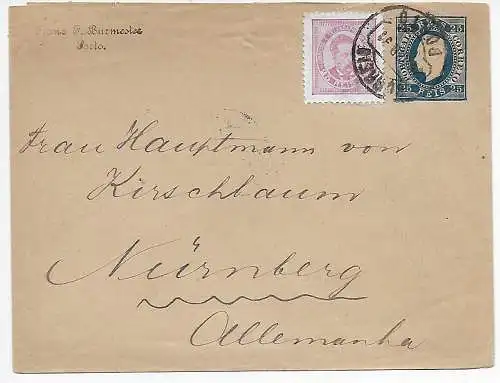 F. Burmester
Porto.
CORREIO
25 25
REIS
Frau Hauptmann von
Kirschbaum
Nürnberg
Allemanha